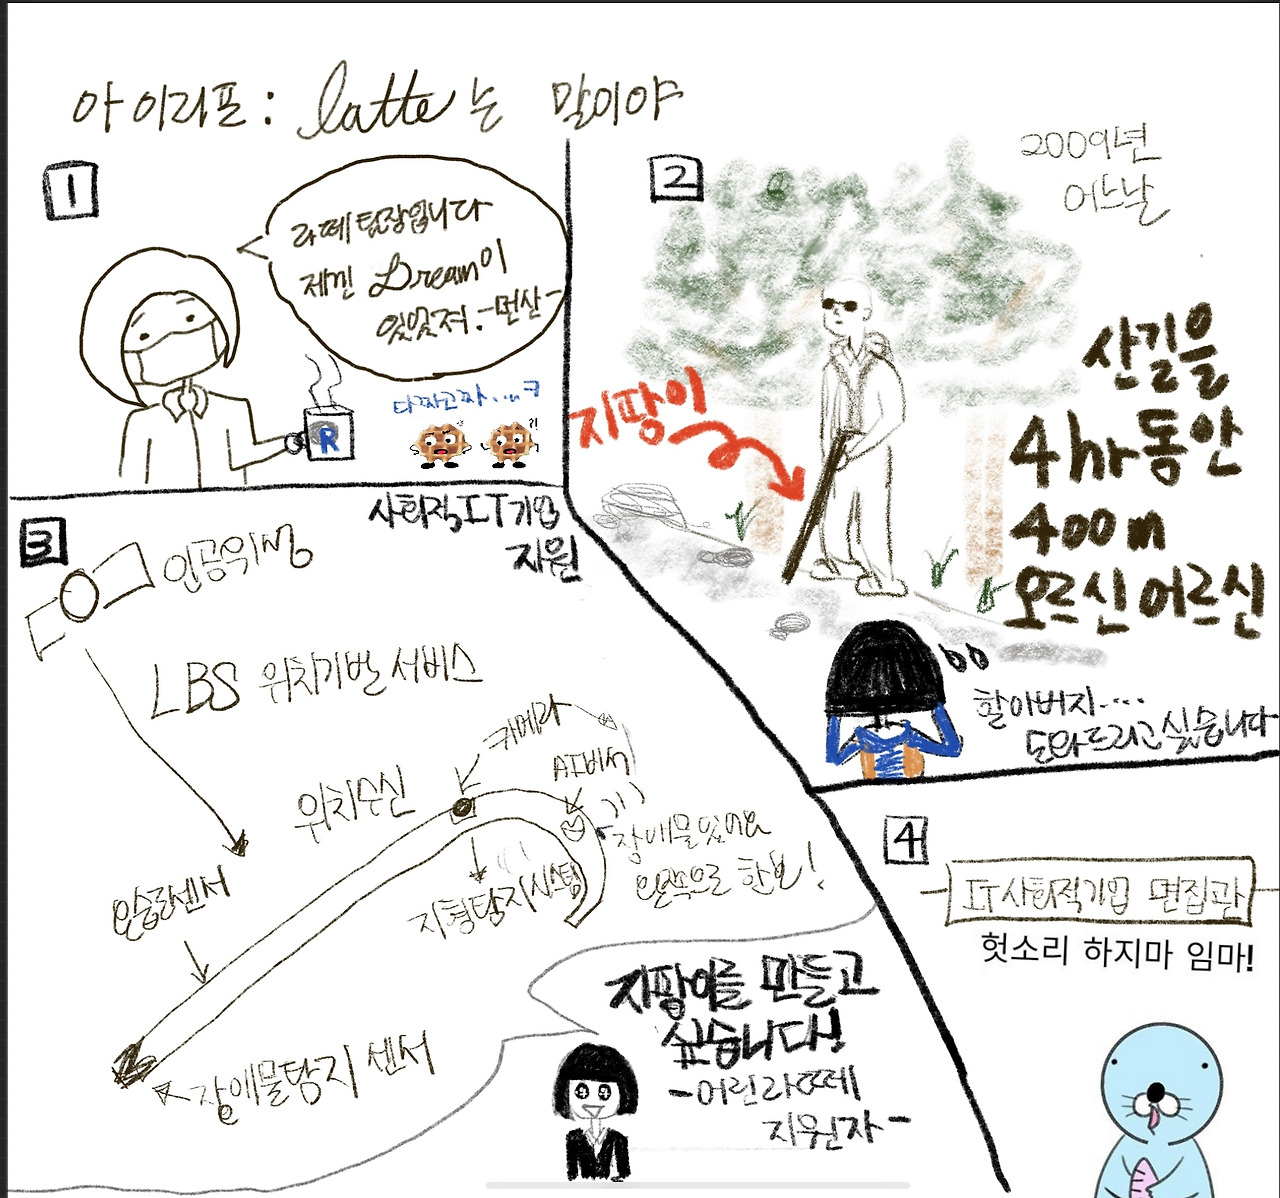 아이리포: latte는 말이야
1
라떼팀장입니다
제낀 Dream이
있었져. -먼산-
다짜고짜.....ㅋ
R
2
2009년
어느날
지팡이
산길을
4hr동안
400m
오르신 어르신
할아버지....
도와드리고 싶습니다
3
사회적 IT기업
지원
인공위성
LBS 위치기반 서비스
카메라
AI비서
위치수신
장애물있어요
왼쪽으로 한보!
지형탐지시스템
온습도센서
장애물탐지 센서
지팡이를 만들고
싶습니다!
-어린라떼
지원자-
4
IT사회적기업 면접관
헛소리 하지마 임마!